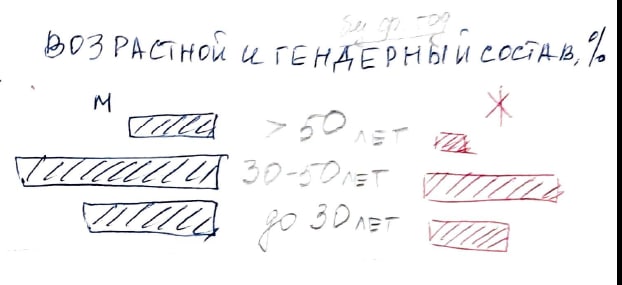 ВОЗРАСТНОЙ И ГЕНДЕРНЫЙ СОСТАВ, %
М
Ж
> 50 ЛЕТ
30-50 ЛЕТ
до 30 ЛЕТ